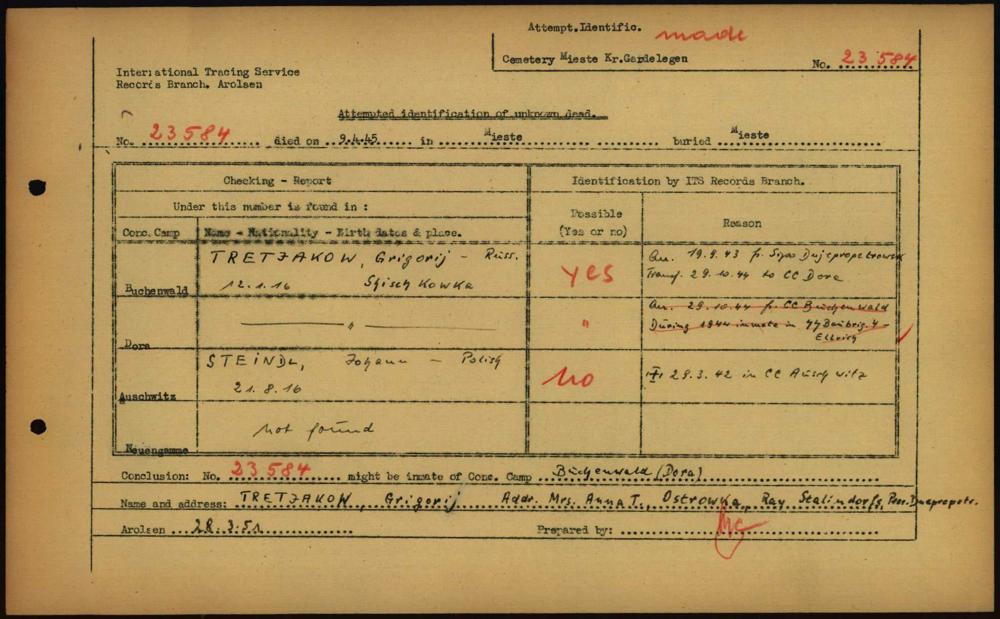 Attempt.Identific. made
Cemetery Mieste Kr.Gardelegen No. 23 584
International Tracing Service
Records Branch. Arolsen
Attempted identification of unknown dead.
No. 23584 died on 9.4.45 in Mieste buried Mieste
Checking - Report Identification by ITS Records Branch.
Under this number is found in :
Possible
(Yes or no) Reason
Conc. Camp Name - Nationality - Birth dates & place.
TRETJAKOW, Grigorij - Russ.
12.1.16
Buchenwald
yes
Arr. 19.9.43 fr. Sipo Dnjepropetrowsk
Transf. 29.10.44 to CC Dora
Dora
"
"
Arr. 29.10.44 fr. CC Buchenwald
During 1944 inmate in SS Baubrig. 4
Ellrich
STEINDL, Johann - Polish
21.8.16
Auschwitz
no
29.3.42 in CC Auschwitz
not found
Neuengamme
Conclusion: No. 23584 might be inmate of Conc. Camp Buchenwald (Dora)
Name and address: TRETJAKOW, Grigorij Addr. Mrs. Anna T., Ostrowka, Ray Stalindorfs,
Arolsen 28.3.51 Prepared by: